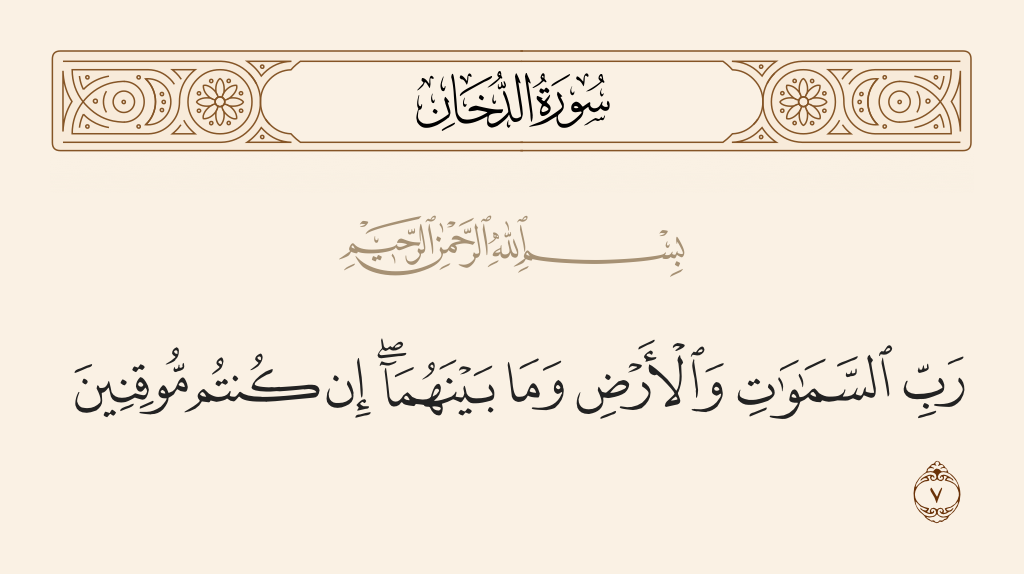 سُورَةُ الدُّخَانِ
بِسْمِ ٱللَّهِ ٱلرَّحْمَٰنِ ٱلرَّحِيمِ
رَبِّ ٱلسَّمَٰوَٰتِ وَٱلْأَرْضِ وَمَا بَيْنَهُمَآ ۖ إِن كُنتُم مُّوقِنِينَ
٧